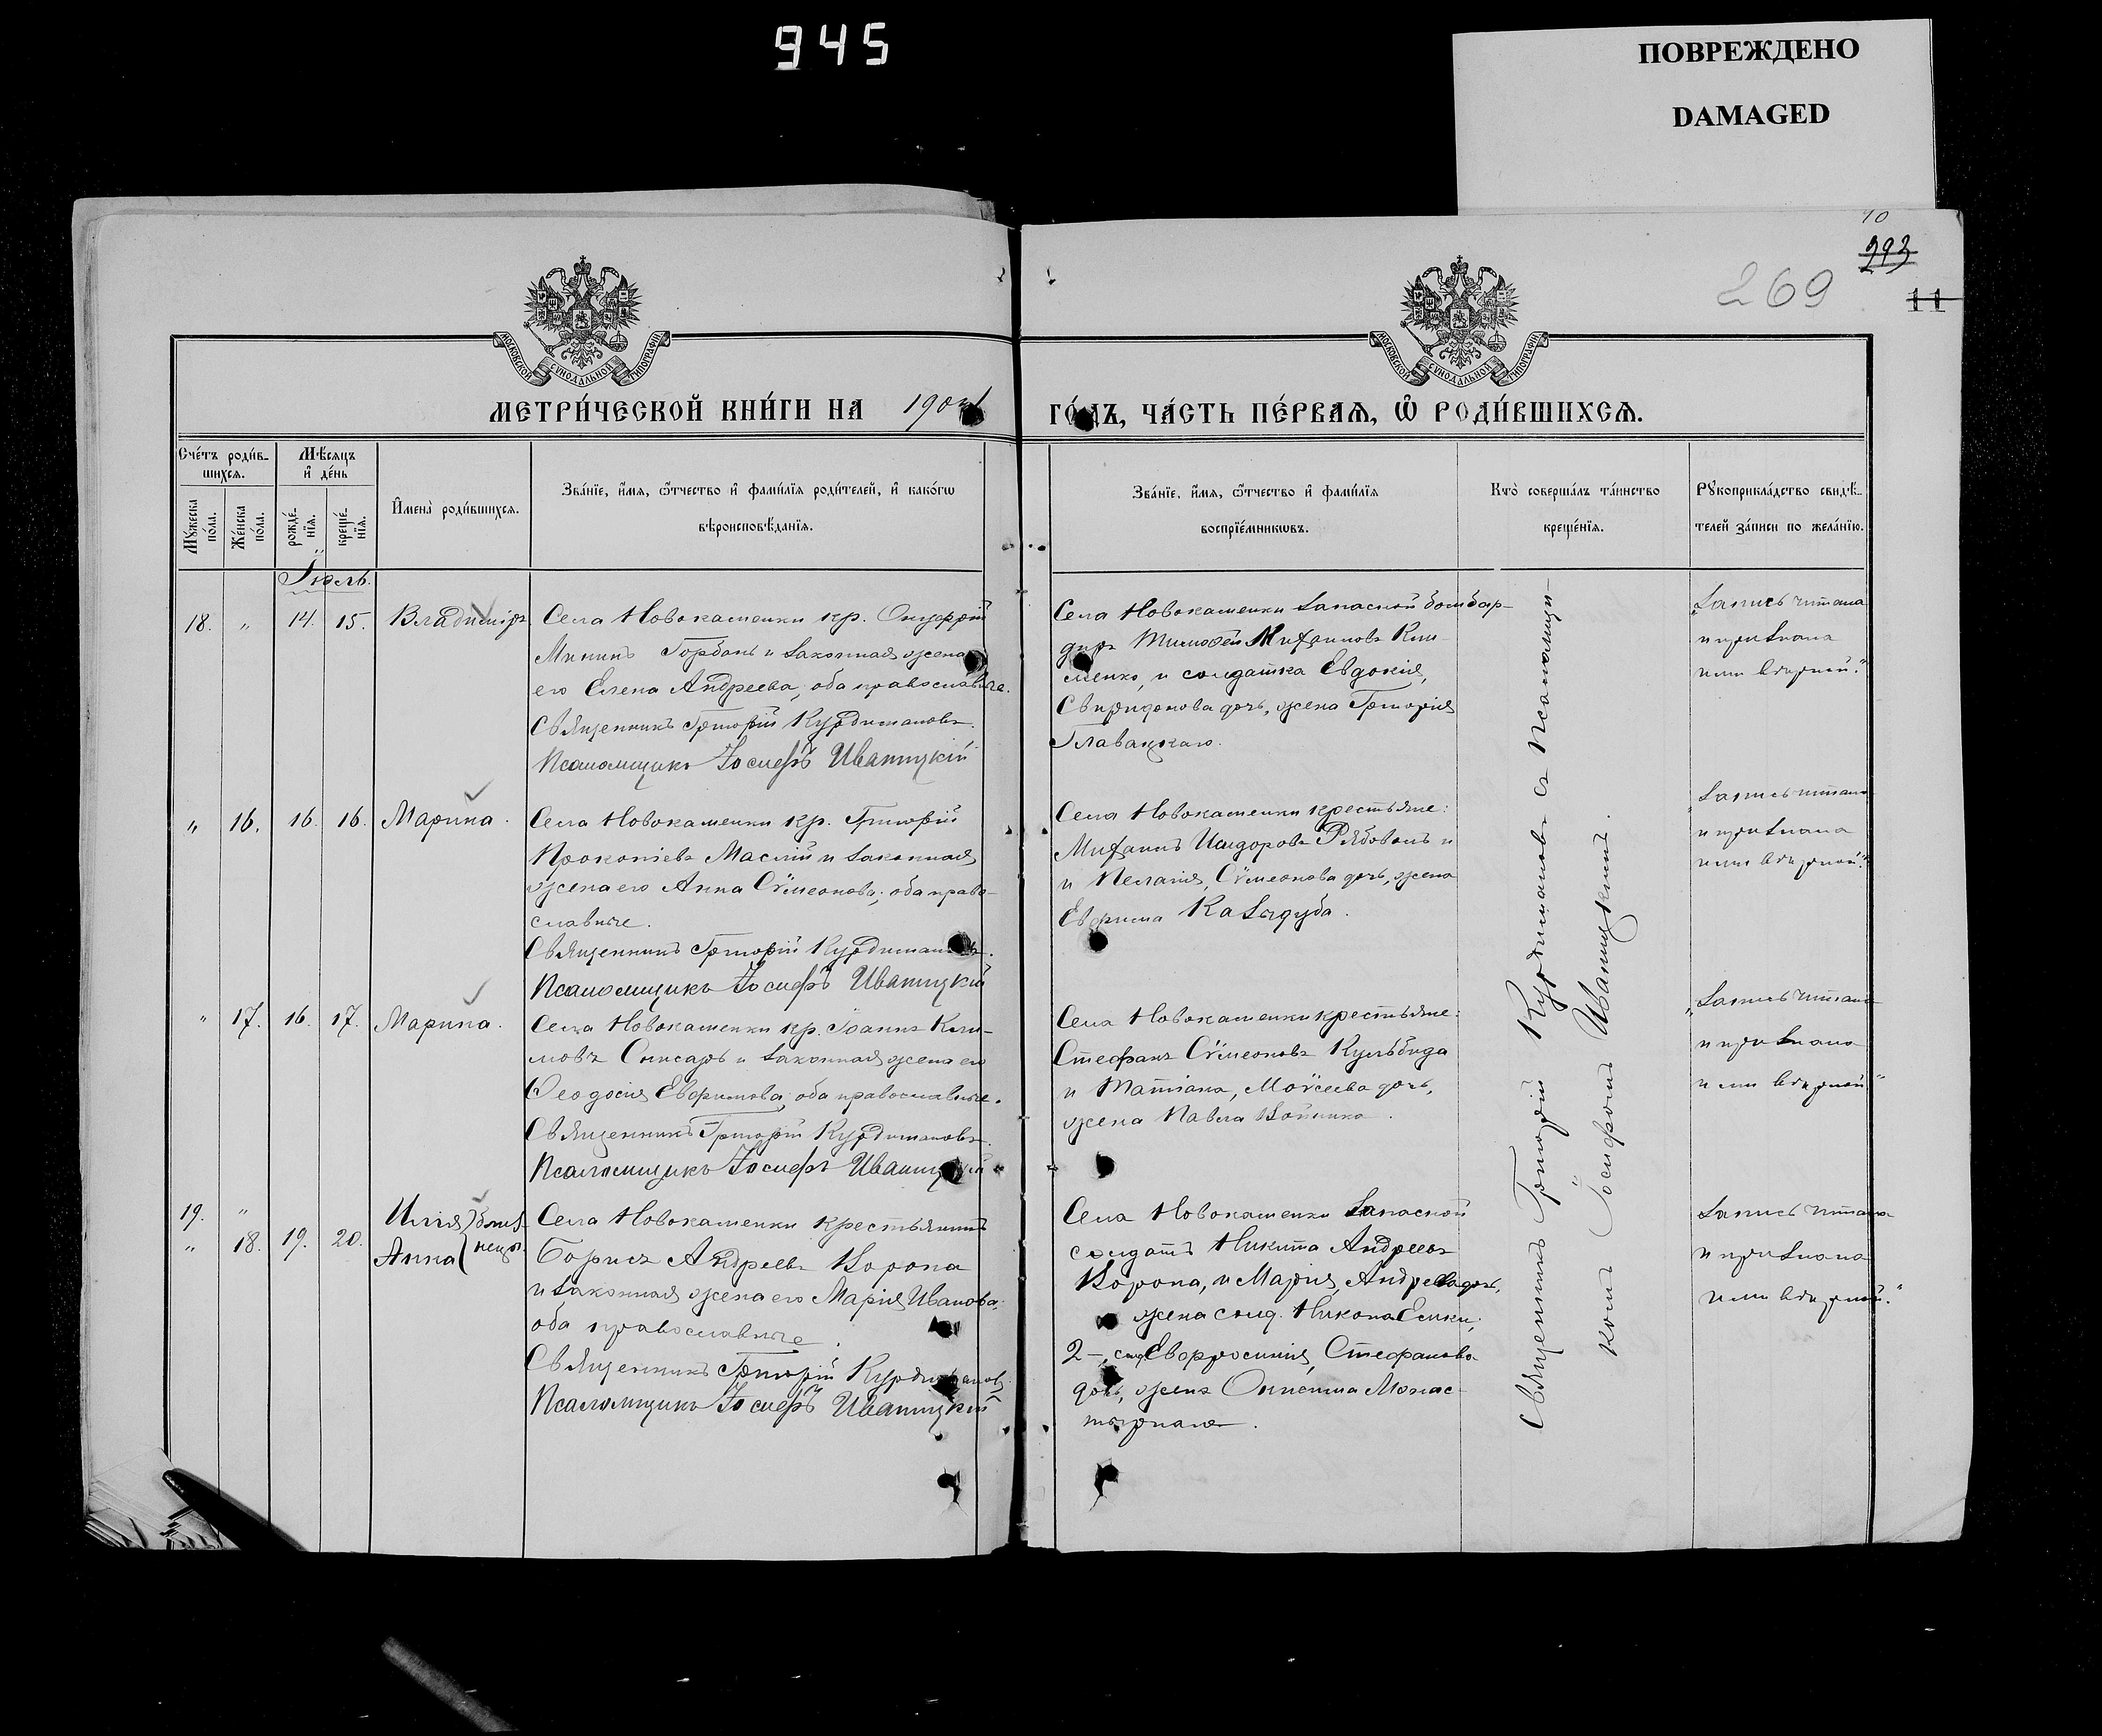 945
ПОВРЕЖДЕНО
DAMAGED
10
293
269
11
МОСКОВСКОЙ СѴНОДАЛЬНОЙ ТИПОГРАФІИ
МОСКОВСКОЙ СѴНОДАЛЬНОЙ ТИПОГРАФІИ
МЕТРИ́ЧЕСКОЙ КНИ́ГИ НА 190
ГО́ДЪ, ЧА́СТЬ ПЕ́РВАЯ, Ѽ РОДИ́ВШИХСЯ.
Сче́тъ роди́в-
шихся.
Мѣ́сяцъ
и҆ де́нь
Мꙋ́жеска
по́ла.
Же́нска
по́ла.
рожде́-
нїя.
креще́-
нїя.
И҆мена̀ роди́вшихся.
Зва́нїе, и҆́мя, ѻ҆́тчество и҆ фами́лїя роди́телей, и҆ како́гѡ
вѣроисповѣ́данїя.
Зва́нїе, и҆́мя, ѻ҆́тчество и҆ фами́лїя
воспрїе́мникѡвъ.
Кто̀ соверша́лъ та́инство
креще́нїя.
Рꙋкоприкла́дство свидѣ́-
телей за́писи по жела́нїю.
Іюль.
18. " 14. 15. Владиміръ
Села Новокаменки кр. Онуфрій
Мининъ Горбань и законная жена
его Елена Андреева, оба православные.
Священникъ Григорій Курдимановъ.
Псаломщикъ Іосифъ Иваницкій
Села Новокаменки запасной бомбар-
диръ Тимофей Михаиловъ Кли-
менко, и солдатка Евдокія,
Свиридонова дочь, жена Григорія
Главацкаго.
Запись читана
и признана
ими верной."
" 16. 16. 16. Марина.
Села Новокаменки кр. Григорій
Прокопіевъ Маслій и законная
жена его Анна Сѵмеонова; оба право-
славные.
Священникъ Григорій Курдимановъ.
Псаломщикъ Іосифъ Иваницкій
Села Новокаменки крестьяне:
Михаилъ Исидоровъ Рябоволъ и
и Пелагія, Сѵмеонова дочь, жена
Евфима Казыдуба.
Запись читана
и признана
ими верной."
" 17. 16. 17. Марина.
Села Новокаменки кр. Іоаннъ Кли-
мовъ Снисарь и законная жена его
Ѳеодосія Евфимова; оба православные.
Священникъ Григорій Курдимановъ.
Псаломщикъ Іосифъ Иваницкій
Села Новокаменки крестьяне:
Стефанъ Сѵмеоновъ Кульбида
и Татіана, Моѵсеева дочь,
жена Павла
Запись читана
и признана
ими верной"
19. " Илія } близ-
" 18. 19. 20. Анна { нецы.
Села Новокаменки крестьянинъ
Борисъ Андреевъ Ворона
и законная жена его Марія Иванова;
оба православные.
Священникъ Григорій Курдимановъ.
Псаломщикъ Іосифъ Иваницкій
Села Новокаменки запасной
солдатъ Никита Андреевъ
Ворона, и Марія, Андреева дочь,
жена солд. Никона
2–, Евфросинія, Стефанова
дочь, жена Монас-
тырнаго.
Запись читана
и признана
ими верной."
Священникъ Григорій Курдимановъ съ Псаломщи-
комъ Іосифомъ Иваницкимъ.